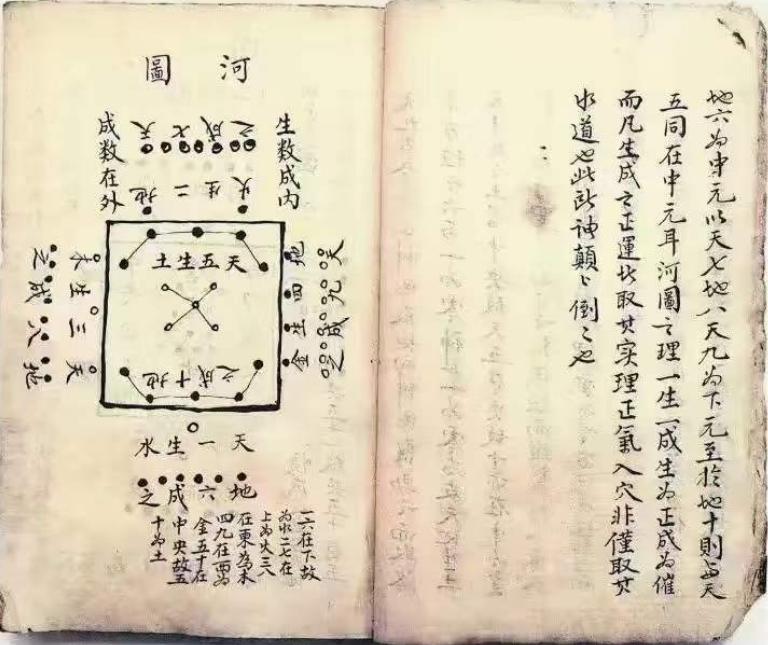 地六为中元以天七地八天九为下元至於地十則与天
五同在中元耳河圖之理一生一成生为正成为催
而凡生成之正運皆取其实理正氣入穴非僅取其
水道也此所神顛〻倒〻也
河圖
生数成内
成数在外
天七成之
地二生火
天五生土
地十成之
地四生金
天九成之
天三生木
地八成之
天一生水
地六成之
一六在下故
为水二七在
上为火三八
在東為木
四九在西为
金五十在
中央故五
十为土